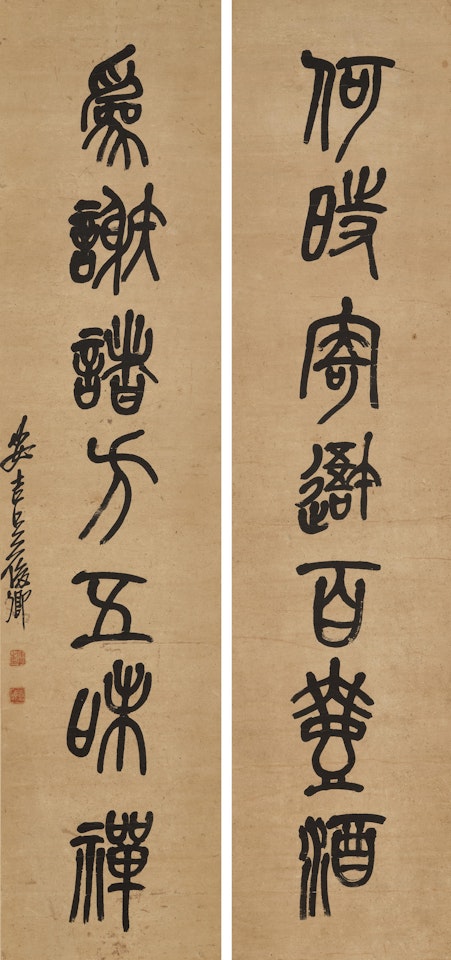 何時寄百酒
為謝諸方五味禪
安吉吳俊卿